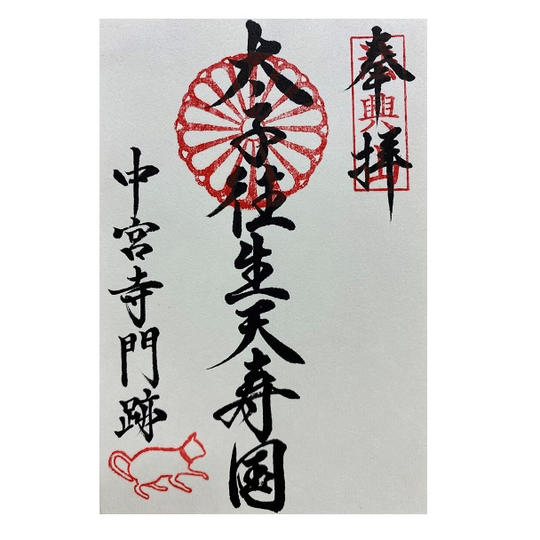 奉拝
太子往生天寿国
中宮寺門跡